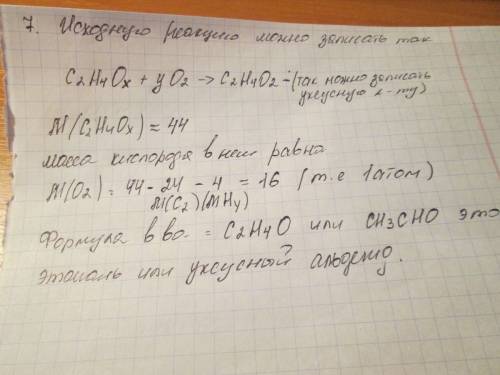 7. Исходную реакцию можно записать так
C2H4Ox + yO2 → C2H4O2 - (так можно записать
уксусную к-ту)
M(C2H4Ox) = 44
масса кислорода в нем равна
M(O2) = 44 - 24 - 4 = 16 (т.е 1 атом)
M(C2) (MH4)
Формула в во. = C2H4O или CH3CHO это
этаналь или уксусный альдегид.